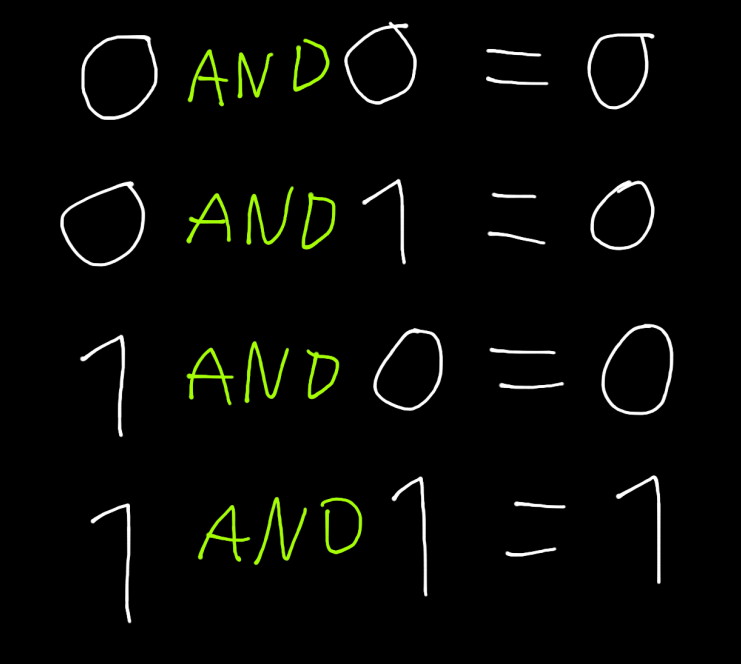 0 AND 0 = 0
0 AND 1 = 0
1 AND 0 = 0
1 AND 1 = 1